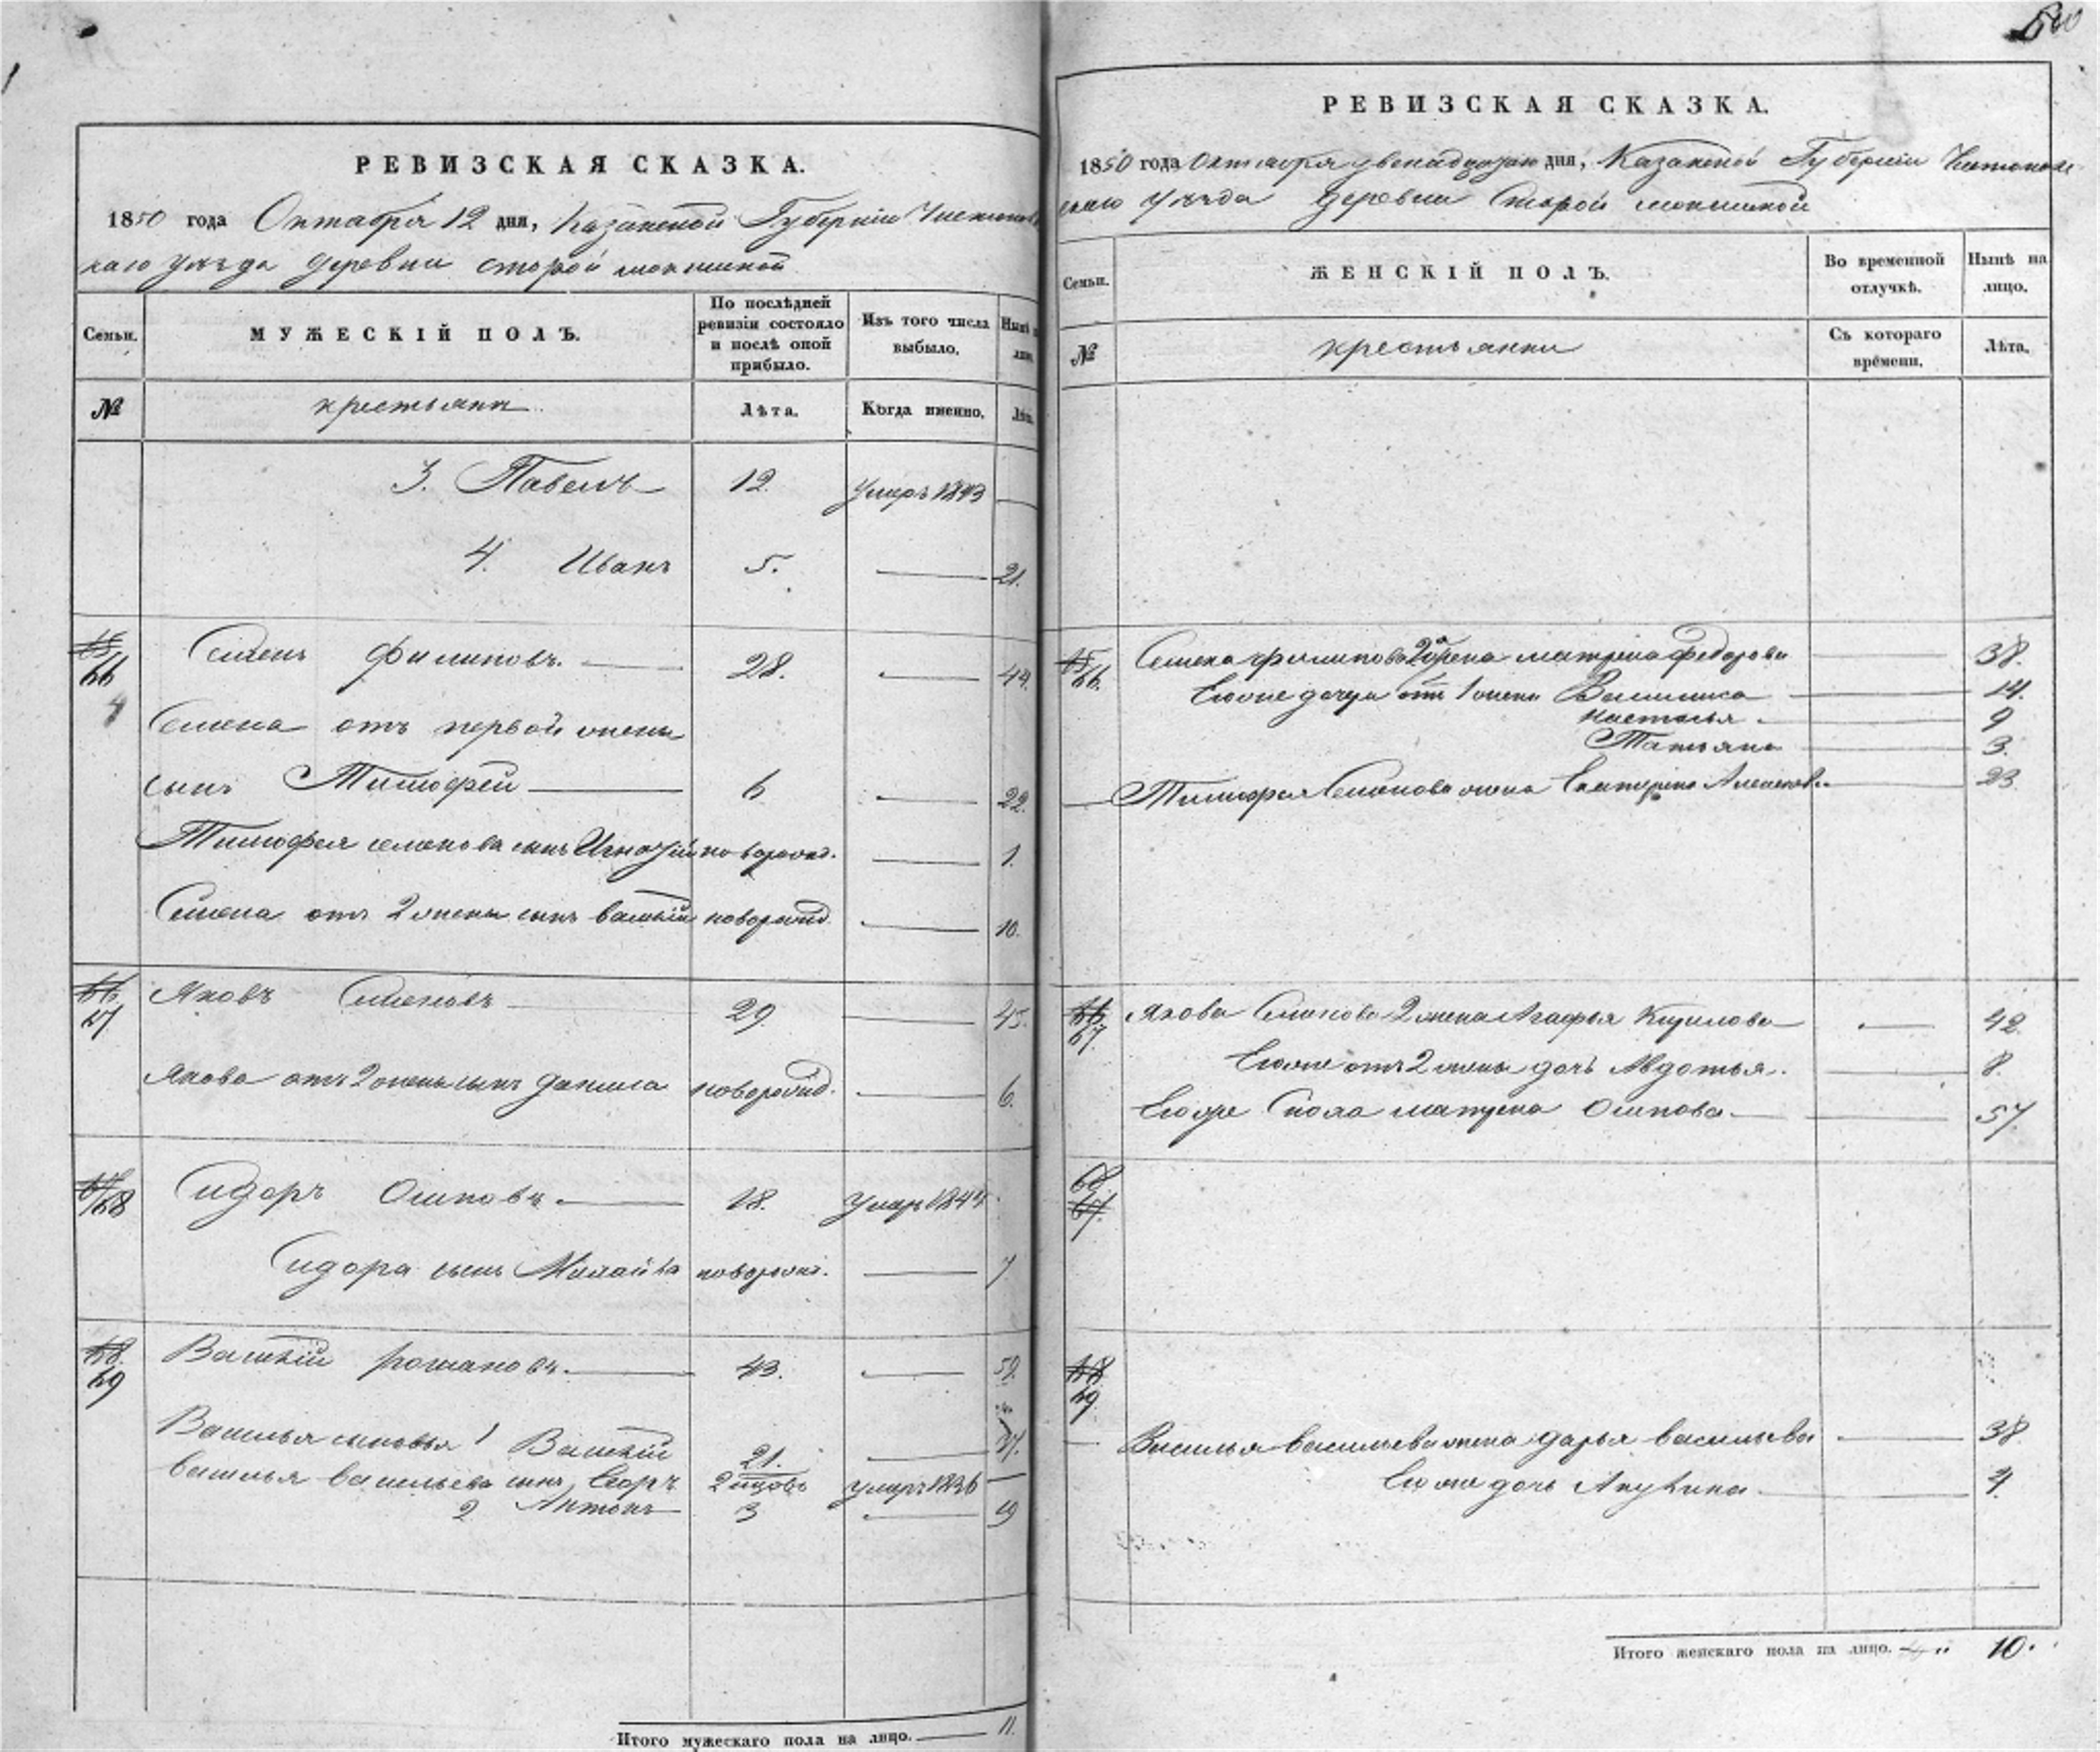 РЕВИЗСКАЯ СКАЗКА.
1850 года Октября 12 дня, Казанской Губерніи
каго уѣзда деревни старой мокшиной
Семьи. МУЖЕСКІЙ ПОЛЪ. По послѣдней ревизіи состояло и послѣ оной прибыло. Изъ того числа выбыло. Нынѣ
№ крестьяни Лѣта. Когда именно.
3. Павелъ 12. умеръ 1843
4. Иванъ 5. — 21.
65/66 Семенъ Филиповъ. — 28. — 44.
Семена отъ первой жены
сынъ Тимофей — 6 — 22.
Тимофея семенова сынъ Игнатій новорожд. — 1.
Семена отъ 2 жены сынъ василій новорожд. — 10.
66/67 Яковъ Семеновъ — 29. — 45.
Якова отъ 2 жены сынъ данила новорожд. — 6.
67/68 Сидоръ Осиповъ. — 18. умеръ 1844
Сидора сынъ Михайла новорожд. — 7
68/69 Василій романовъ. — 43. — 59.
Василья сыновья 1 Василій 21. — 37.
Василья васильева сынъ Егоръ умеръ 1836 —
2 Антонъ 3 — 19
Итого мужескаго пола на лицо. — 11.
РЕВИЗСКАЯ СКАЗКА.
1850 года Октября двенадцатаго дня, Казанской Губерніи Чистополь
скаго уѣзда деревни Старой мокшиной
Семьи. ЖЕНСКІЙ ПОЛЪ. Во временной отлучкѣ. Нынѣ на лицо.
№ крестьянки Съ котораго времени. Лѣта.
65/66. Семена филипова 2я жена матрена федорова — 38.
Его же дочери отъ 1 жены Василиса — 14.
настасья. — 9
Татьяна — 3.
Тимофея Семенова жена Екатерина Алексеева — 23.
66/67. Якова Семенова 2 жена Агафья Кирилова — 42.
Его же отъ 2 жены дочь Авдотья. — 8.
Его же матрена Осипова — 57.
68/67.
68/69.
Василья васильева жена дарья васильева — 38.
Его же дочь Акулина — 4.
Итого женскаго пола на лицо. 10.